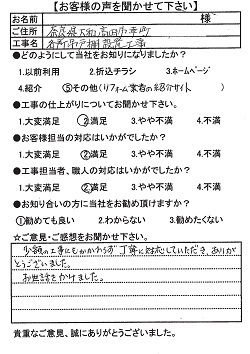 【お客様の声を聞かせて下さい】
お名前 様
ご住所 奈良県大和高田市幸町
工事名 台所吊戸棚設置工事
●どのようにして当社をお知りになりましたか?
1.以前利用 2.折込チラシ 3.ホームページ
4.紹介 ⑤その他(リフォーム業者の紹介サイト )
●工事の仕上がりについてお聞かせ下さい。
1.大変満足 ②満足 3.やや不満 4.不満
●お客様担当の対応はいかがでしたか?
1.大変満足 ②満足 3.やや不満 4.不満
●工事担当者、職人の対応はいかがでしたか?
1.大変満足 ②満足 3.やや不満 4.不満
●お知り合いの方に当社をお勧め頂けますか?
①勧めても良い 2.わからない 3.勧めたくない
☆ご意見・ご感想をお聞かせ下さい。
少額の工事にもかかわらず丁寧に対応していただき、ありが
とうございました。
お世話をかけました。
貴重なご意見、誠にありがとうございました。